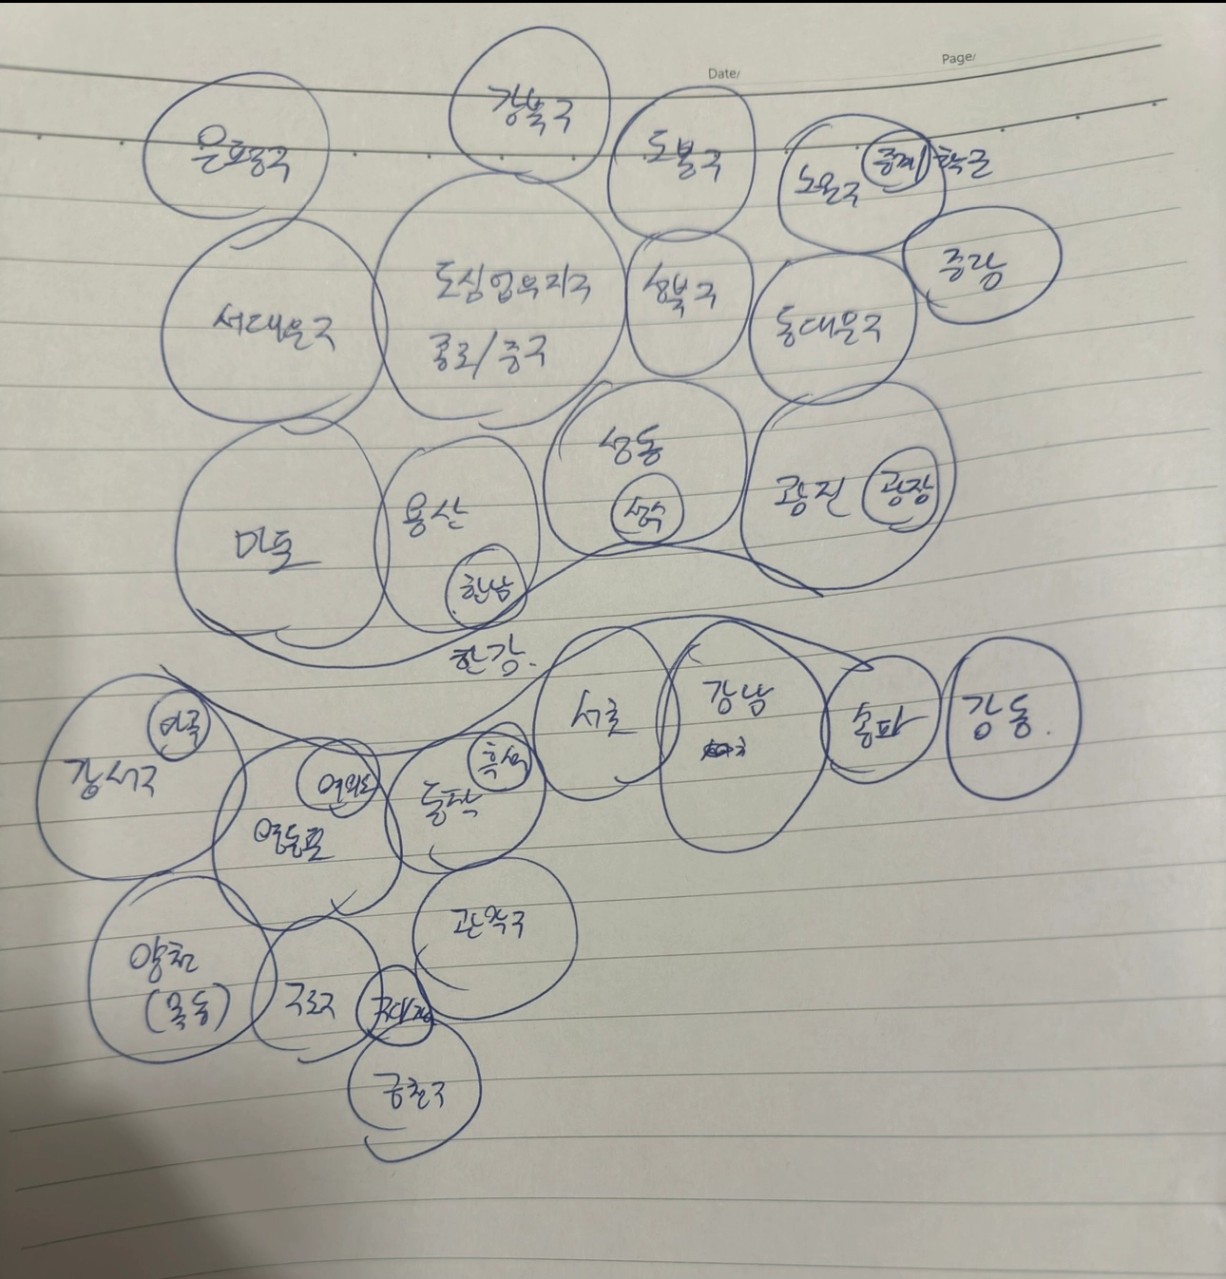 Date/
Page/
은평구
강북구
도봉구
노원구
중계
학군
중랑
서대문구
도심업무지구
종로/중구
성북구
동대문구
마포
용산
한남
성동
성수
광진
광장
한강.
강서구
마곡
영등포
여의도
동작
흑석
서초
강남
송파
강동.
양천
(목동)
구로구
관악구
금천구